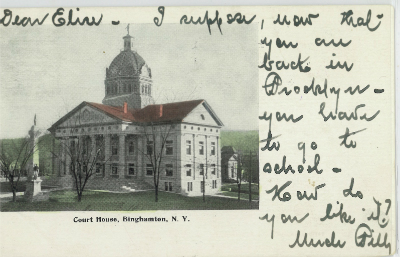 Dear Elise - I suppose, now that
you are
back in
Brooklyn -
you have
to go to
school -
How do
you like it?
Much
Court House, Binghamton, N. Y.